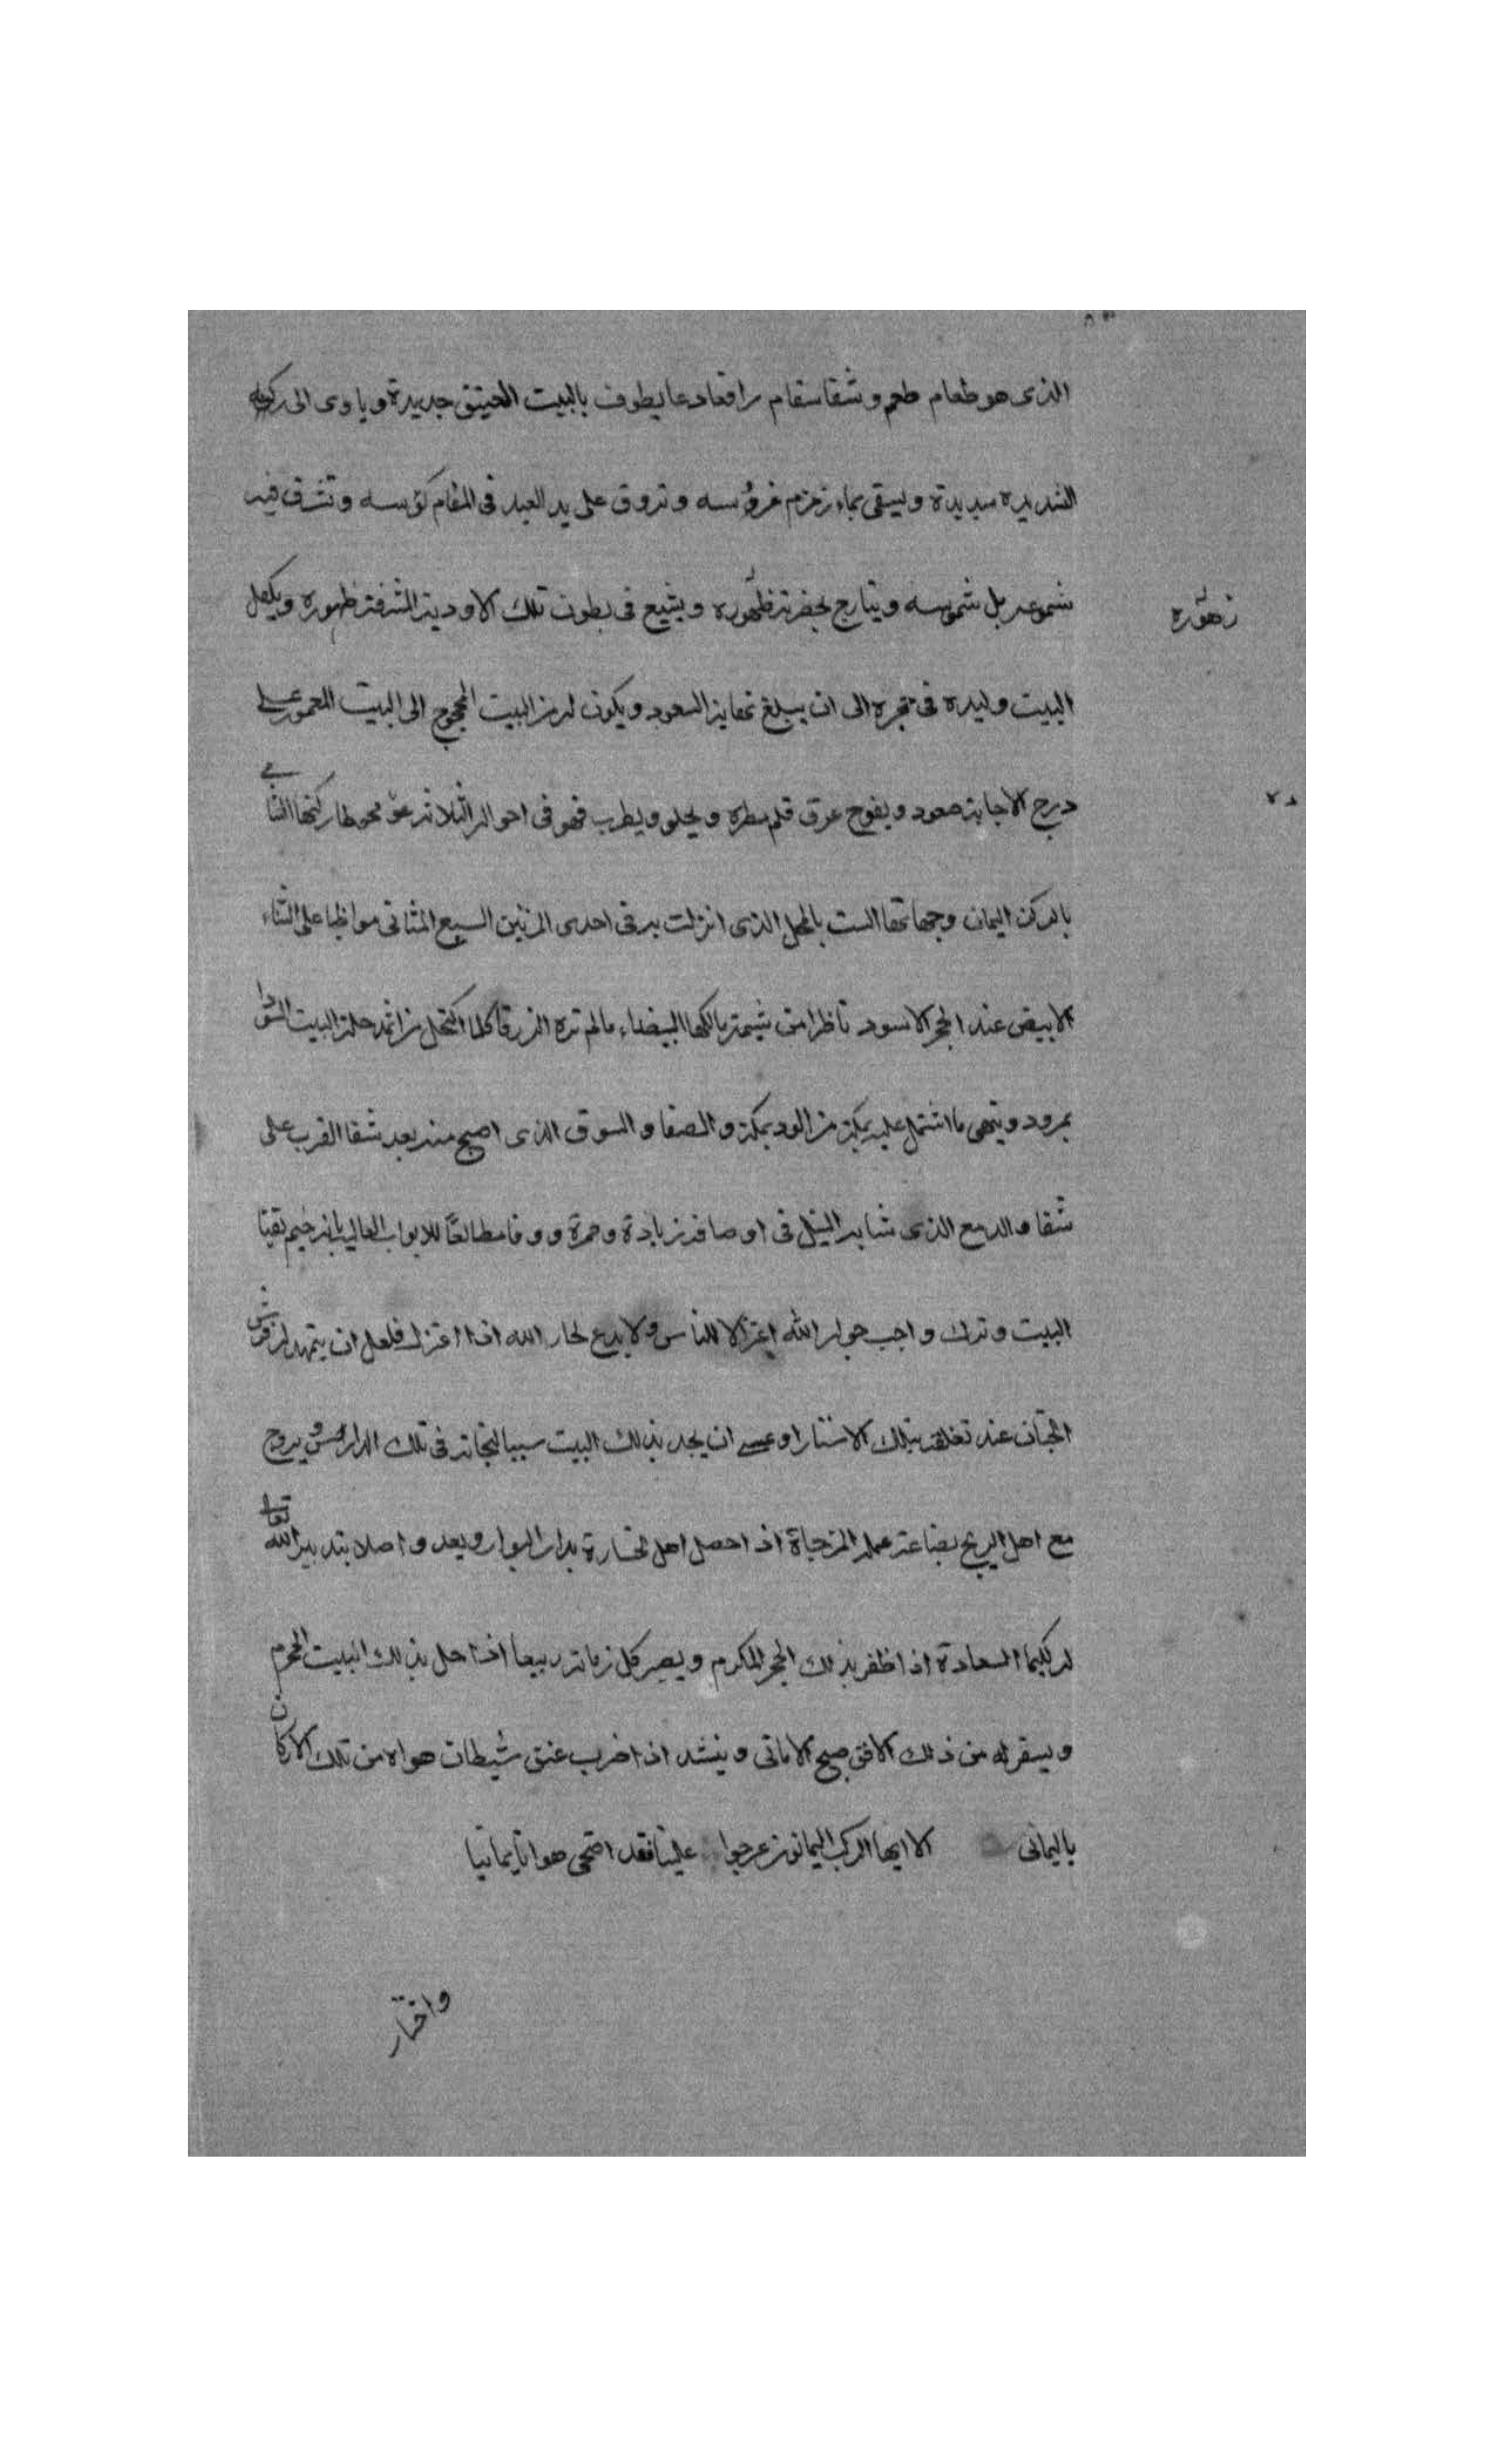 الذى هو طعام طعم وشفا سقام رافعا دعا يطوف بالبيت العتيق جديدة وياوى الى ركنه
الشديده سديدة ويسقى بماء زمزم غروسه وتروق على يد العبد فى المقام كؤسه وتشرق فيه
شموعه بل شموسه ويتارج بحضرته ظهوره ويشيع فى بطون تلك الاودية المشرفة ظهوره ويكفل
زهوره
البيت وليده فى حجره الى ان يبلغ نهاية السعود ويكون له من البيت المحجوج الى البيت المعمور على
درج الاجابة صعود ويفوح عرق قلم سطره ويحلو ويطرب فهو فى احواله الثلاثة عود محوطا ركنها الشامى
بالركن اليمانى وجهاتها الست بالمحل الذى انزلت به فى احدى المرتين السبع المثانى مواظبا على الثناء
الابيض عند الحجر الاسود ناظرا من شيمة مالكها البيضاء ما لم تره الزرقا كلما اكتحل من اثمد حلة البيت السودا
بمرود وينهى ما اشتمل عليه بمكة من الود بمكة والصفا والشوق الذى اصبح منه بعد شفا القرب على
شفا والدمع الذى شابه النيل فى اوصافه زيادة وحمرة ووفا مطالعًا للابواب العالية بانه خيم بفنا
البيت وترك واجب جوار الله اعتزالا للناس ولا بدع لجار الله اذا اعتزل فلعل ان يتمهد له فرش
الجنان عند تعلقه بتلك الاستار وعسى ان يجد بذلك البيت سببا لنجاته فى تلك الدار ويروح
مع اهل الربح بضاعة عمله المزجاة اذا حصل اهل الخسارة بدار البوار ويعد واصلا بتدبير الله تعالى
له كيميا السعادة اذا ظفر بذلك الحجر المكرم ويصير كل زمانه ربيعا اذا حل بذلك البيت المحرم
ويسفر له من ذلك الافق صبح الامانى وينشد اذا ضرب عنق شيطان هواه من تلك الاركان
باليمانى الا ايها الركب اليمانون عرجوا علينا فقد اضحى هوانا يمانيا
واختار